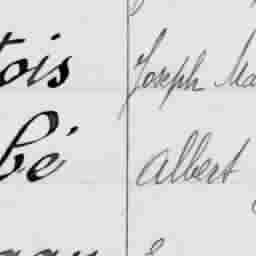 tois Joseph Ma
bé Albert